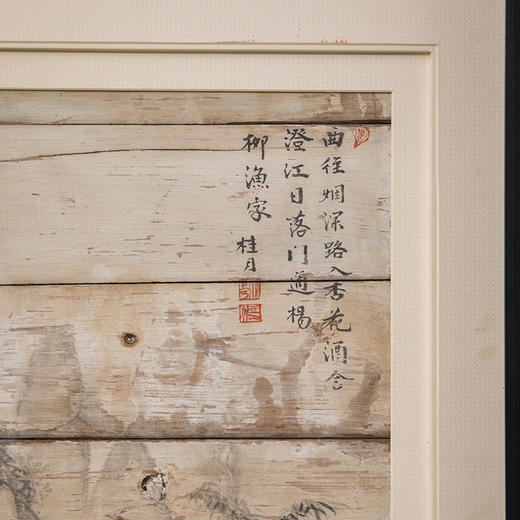 曲径烟深路入杏花酒舍
澄江日落门通杨
柳渔家 桂月